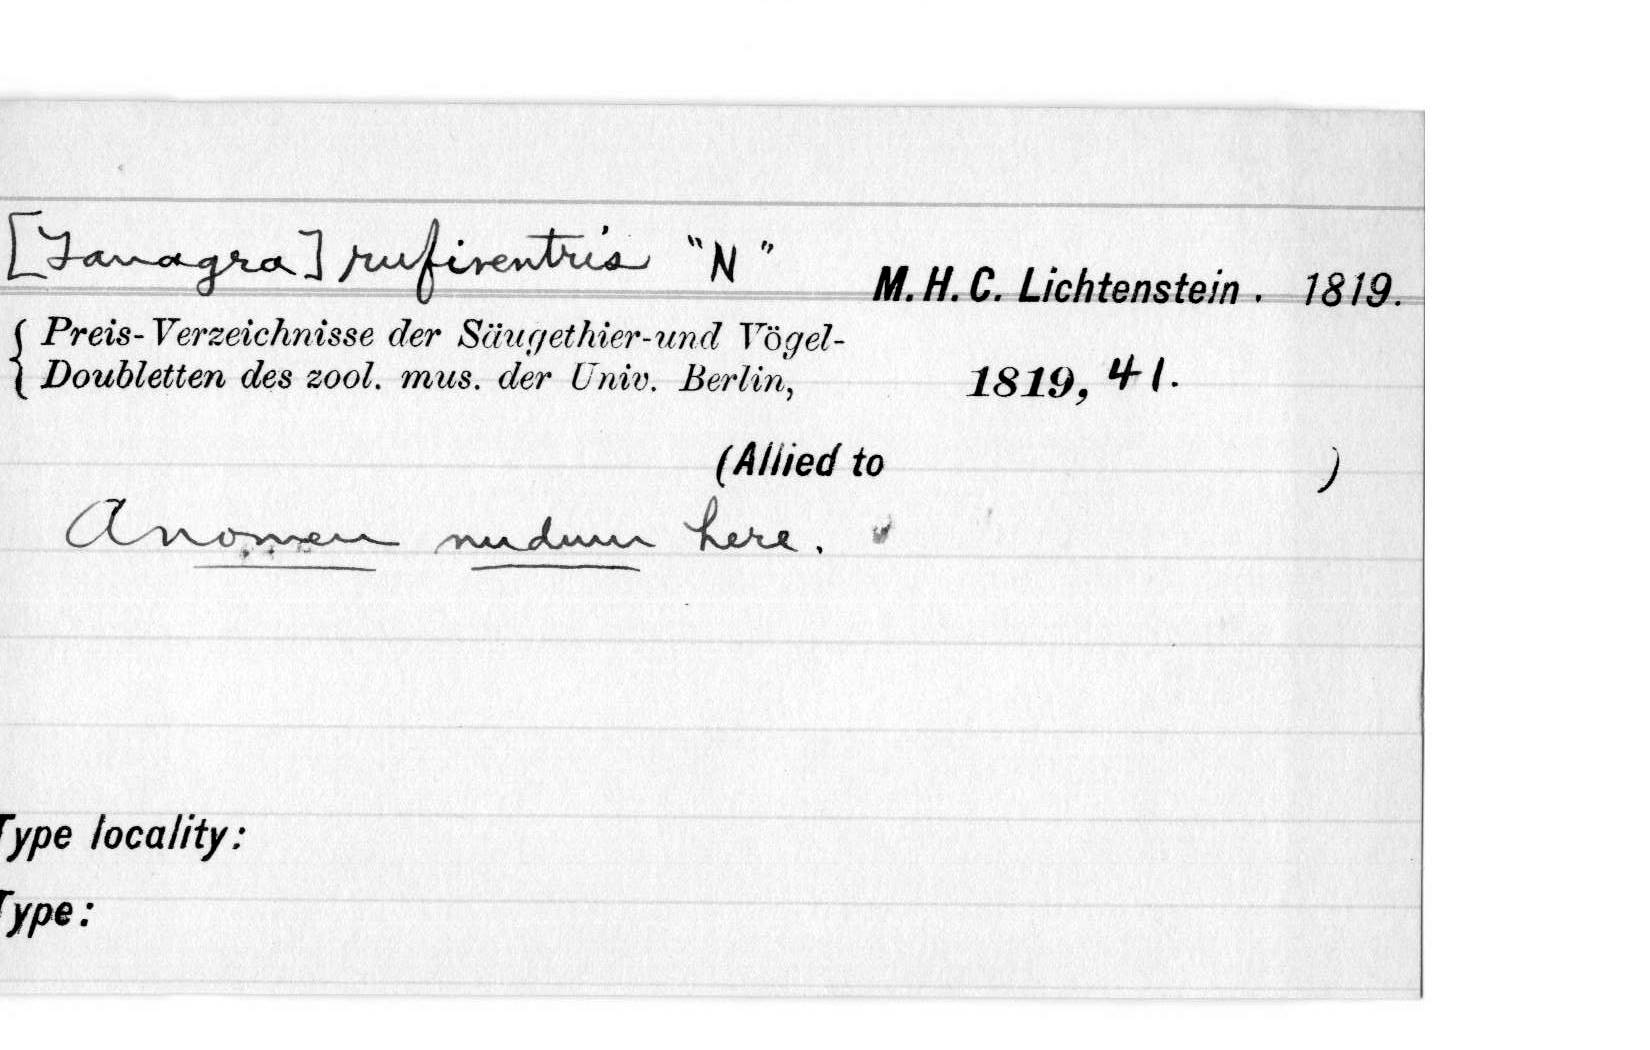 [Tanagra] rufiventris "N"
M. H. C. Lichtenstein . 1819.
Preis-Verzeichnisse der Säugethier-und Vögel-
Doubletten des zool. mus. der Univ. Berlin, 1819, 41.
(Allied to )
A nomen nudum here.
Type locality:
Type: